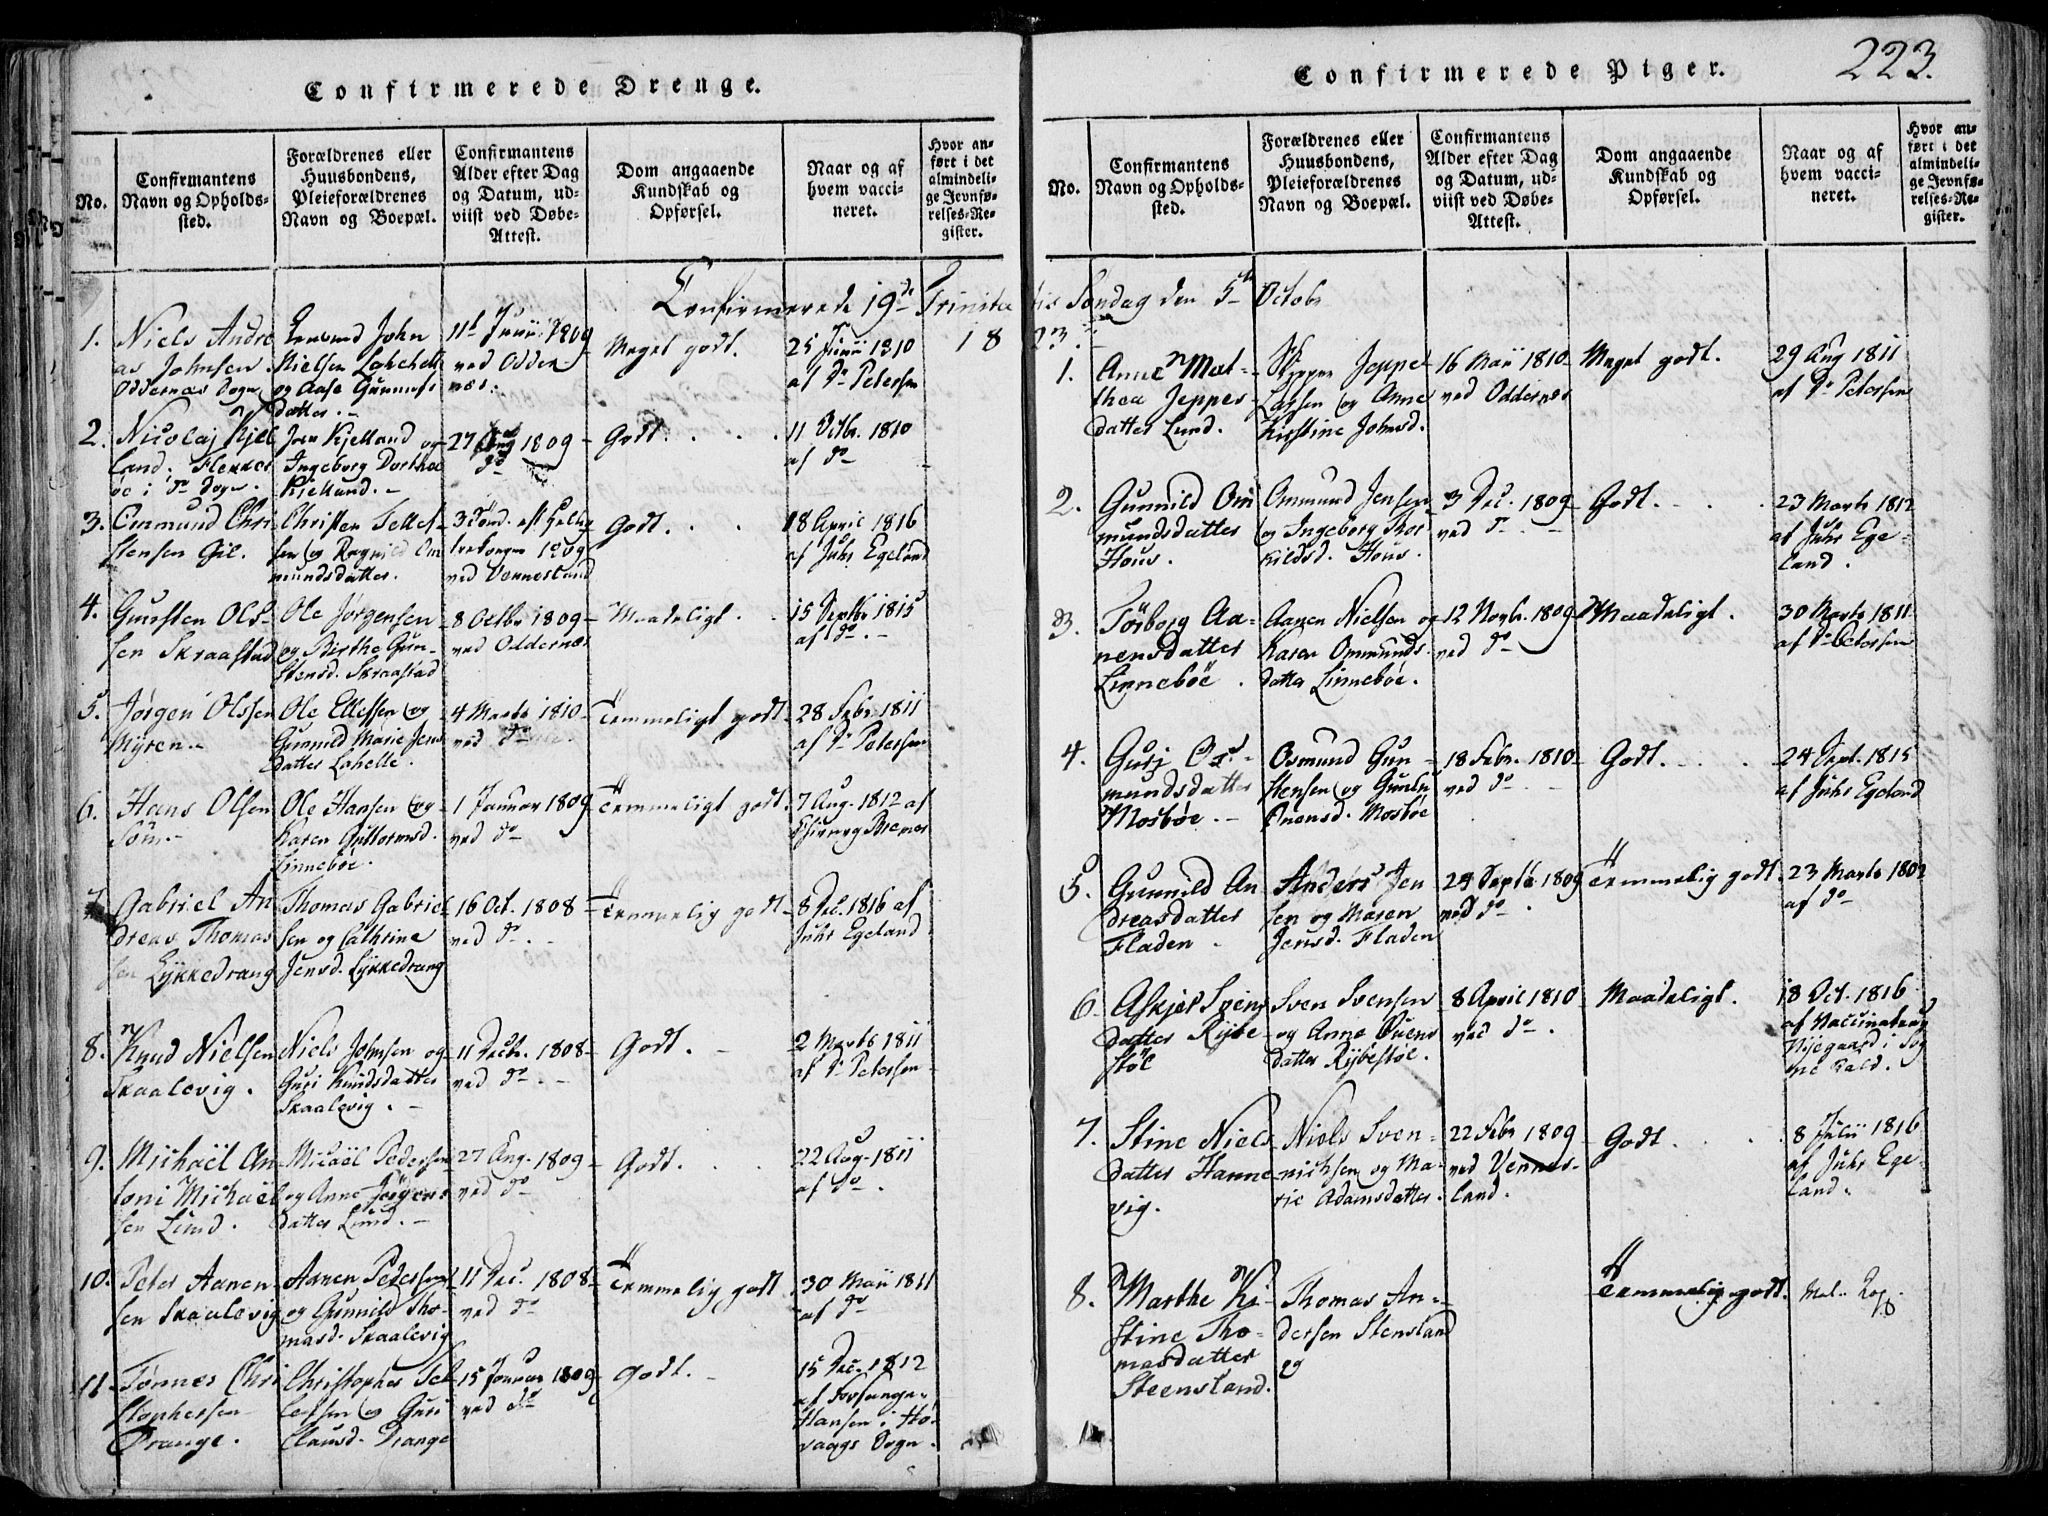 223.
Confirmerede Drenge.
No.
Confirmantens Navn og Opholdssted.
Forældrenes eller Huusbondens, Pleieforældrenes Navn og Boepæl.
Confirmantens Alder efter Dag og Datum, udviist ved Døbe-Attest.
Dom angaaende Kundskab og Opførsel.
Naar og af hvem vaccineret.
Hvor anført i det almindelige Jevnførelses-Register.
Confirmerede 19de Trinitatis Søndag den 5te Octobr 1823.
1.
Niels Andre
as Johnsen
Oddernæs Sogn
John
Nielsen
og Aase
datter.
11t Junii 1809
ved Odder
næs.
Meget godt.
25 Junii 1810
af Dr Petersen
2.
Nicolaj Kjel
land. Flekker
øe i do Sogn.
Kjelland og
Ingeborg Dorthea
Kielland.
27 Aug 1809
do
Godt.
11 Octbr. 1810
af do
3.
Ommund Chri
stensen Gil.
Christen Tellef
sen og Ragnild Om
mundsdatter.
3 Sønd. eft. Hellig
trekonger 1809
ved Vennesland
Godt.
18 April 1816
af Juhr Egeland
4.
Gunsten Ols-
sen Skraastad
Ole Jørgensen
og Birthe Gun-
stensd. Skraastad
8 Octbr 1809
ved Oddernæs
Maadeligt.
15 Septbr 1815
af do.
5.
Jørgen Olssen
Myren.
Ole Ellefsen og
Gunnild Marie Jens
datter Lahelle.
4 Marts 1810
ved do
Temmeligt godt
28 Febr. 1811
af Dr Petersen
6.
Hans Olsen
Ole Hansen og
Karen Guttormsd.
Linnebøe.
1 Januar 1809
ved do
Temmeligt godt.
7 Aug. 1812 af
7.
Gabriel An
dreas Thomas
sen Lykkedrang
Thomas Gabriel
sen og Cathrine
Jensd. Lykkedrang
16 Oct. 1808
ved do.
Temmelig godt
8 Dec. 1816 af
Juhr Egeland
8.
Knud Nielsen
Skaalevig.
Niels Johnsen og
Guri Knudsdatter
Skaalevig.
11 Decbr. 1808
ved do.
Godt.
2 Marts 1811
af Dr Petersen
9.
Michaël An
toni Michael
sen Lund.
Micaël Pedersen
og Anne Jørgens
datter Lund.
27 Aug. 1809
ved do
Godt.
22 Aug. 1811
af do.
10.
Peter Aanen
sen Skaalevig
Aanen Pedersen
og Gunnild Tho-
masd. Skaalevig
11 Dec. 1808
ved do
Temmelig godt
30 Maii 1811
af do
11
Tønnes Chri
stophersen
Drange.
Christopher Tel
lefsen og Guri
Clausd. Drange
15 Januar 1809
ved do
Godt.
15 Dec. 1812
af
Hansen i Hø-
vaags Sogn.
Confirmerede Piger.
No.
Confirmantens Navn og Opholdssted.
Forældrenes eller Huusbondens, Pleieforældrenes Navn og Boepæl.
Confirmantens Alder efter Dag og Datum, udviist ved Døbe-Attest.
Dom angaaende Kundskab og Opførsel.
Naar og af hvem vaccineret.
Hvor anført i det almindelige Jevnførelses-Register.
1.
Anne Mat-
thea Jeppes-
datter Lund.
Skipper Jeppe
Larsen og Anne
Kirstine Johnsd.
16 Maii 1810
ved Oddernæs
Meget godt.
29 Aug 1811
af Dr Petersen
2.
Gunnild Om
mundsdatter
Hous.
Ommund Jensen
og Ingeborg Thor
kildsd. Hous.
3 Dec. 1809
ved do
Godt.
23 Marts 1812
af Juhr Ege-
land.
3.
Torborg Aa-
nensdatter
Linnebøe.
Aanen Nielsen og
Karen Ommunds
datter Linnebøe.
12 Novbr. 1809
ved do
Maadeligt.
30 Marts 1811
af Dr Petersen
4.
Guri Os-
mundsdatter
Mosbøe.
Osmund Gun-
stensen og Gunlu
Onensd. Mosbøe
18 Febr. 1810
ved do
Godt.
24 Sept. 1815
af Juhr Egeland
5.
Gunnild An
dreasdatter
Fladen.
Anders Jen
sen og Maren
Jensd. Fladen
24 Septb 1809
ved do
Temmelig godt.
23 Marts 1802
af do
6.
Askjer Svens
datter Rybe
støl
Sven Svensen
og Anne Ouens
datter Rybestøe.
8 April 1810
ved do.
Maadeligt.
18 Oct. 1816
af Vaccinateur
i Sog
ne Kald.
7.
Stine Niels
datter Hanne
vig.
Niels Sven-
nichsen og Ma-
rie Adamsdatter.
22 Febr 1809
ved Vennes-
land.
Godt.
8 Julii 1816
af Juhr Ege-
land.
8.
Marthe Ki-
stine Tho-
masdatter
Steensland.
Thomas An-
dersen Stensland
og
Temmelig godt.